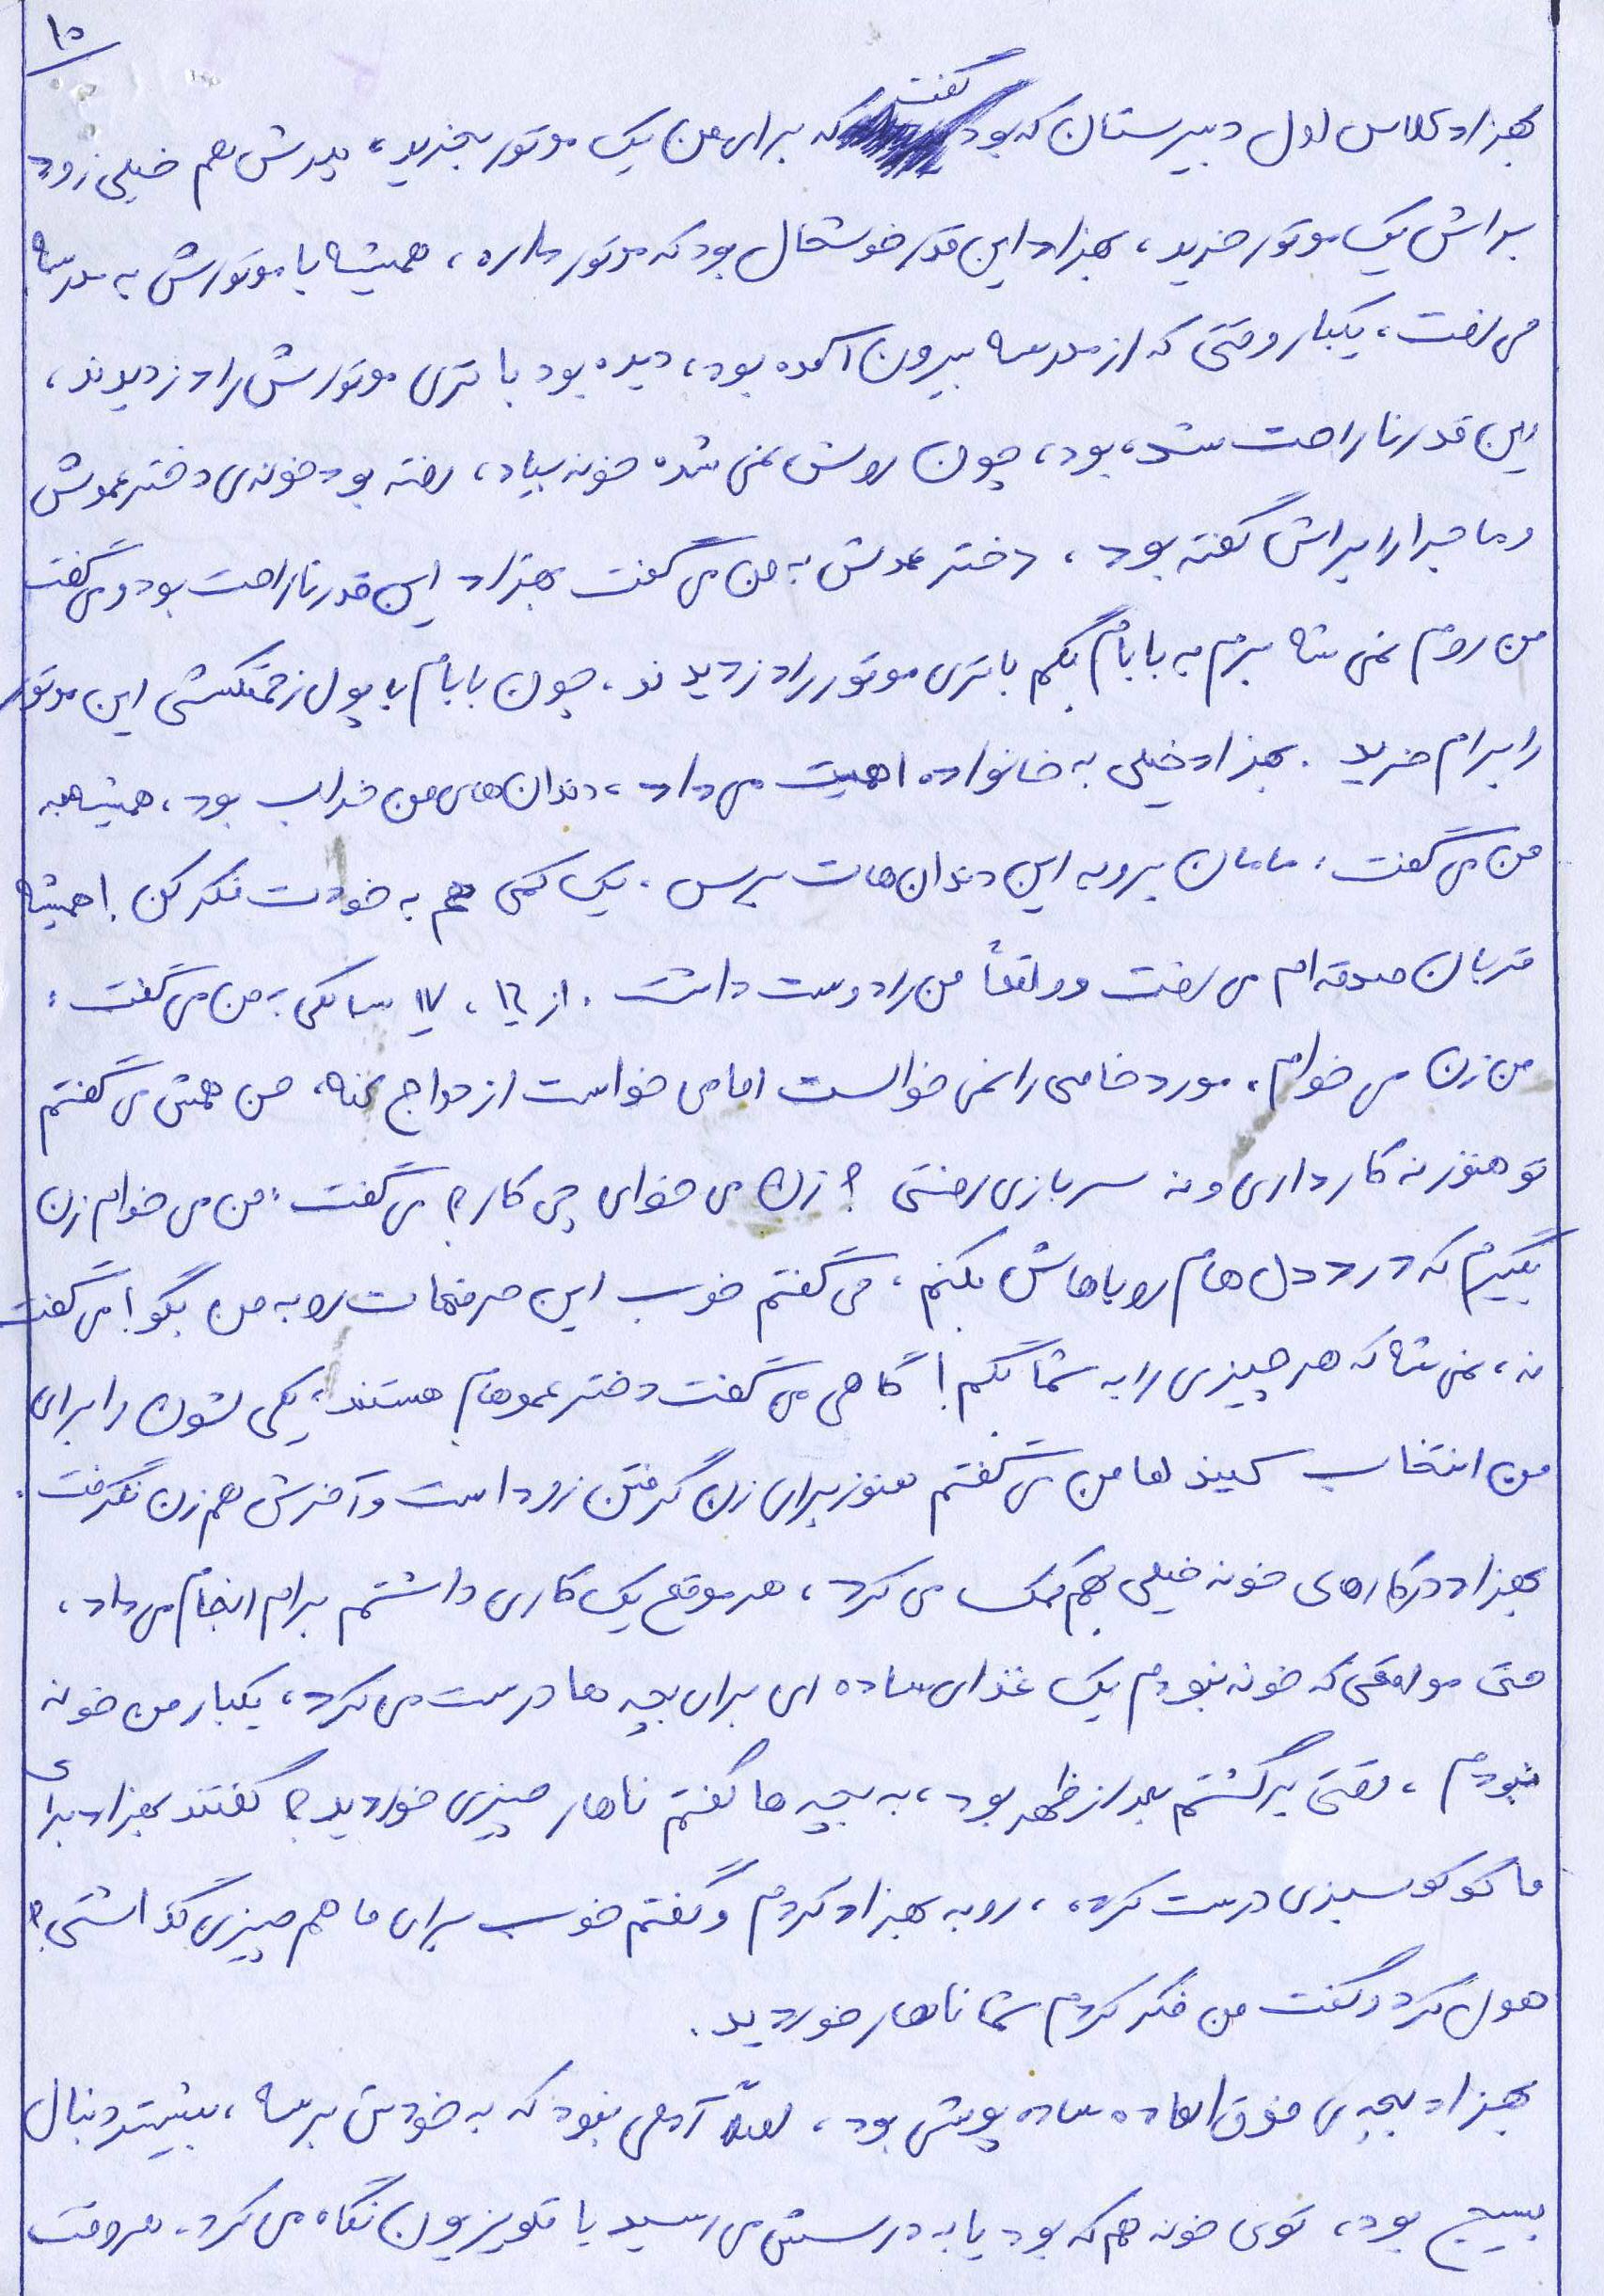 ۱۵
بهزاد کلاس اول دبیرستان که بود گفت که برای من یک موتور بخرید، پدرش هم خیلی زود
براش یک موتور خرید، بهزاد این قدر خوشحال بود که موتور داره، همیشه با موتورش به مدرسه
می رفت، یکبار وقتی که از مدرسه بیرون آمده بود، دیده بود باتری موتورش را دزدیدند،
این قدر ناراحت شده بود، چون روش نمی شده خونه بیاد، رفته بود خونه ی دختر عموش
و ماجرا را براش گفته بود، دختر عموش به من می گفت بهزاد این قدر ناراحت بود و می گفت
من روم نمی شه برم به بابام بگم باتری موتور را دزدیدند، چون بابام با پول زحمتکشی این موتور
را برام خرید. بهزاد خیلی به خانواده اهمیت می داد، دندان های من خراب بود، همیشه به
من می گفت: مامان برو به این دندان هات برس، یک کمی هم به خودت فکر کن! همیشه
قربان صدقه ام می رفت و واقعاً من را دوست داشت. از ۱۶، ۱۷ سالگی به من می گفت:
من زن می خوام، مورد خاصی را نمی خواست اما می خواست ازدواج کنه، من همش می گفتم
تو هنوز نه کار داری و نه سربازی رفتی؟ زن می خوای چی کار؟ می گفت: من می خوام زن
بگیرم که درد دل هام رو باهاش بکنم، می گفتم خوب این حرفهات رو به من بگو! می گفت
نه، نمی شه که هر چیزی را به شما بگم! گاهی می گفت دختر عموهام هستند، یکی شون را برای
من انتخاب کنید اما من می گفتم هنوز برای زن گرفتن زود است و آخرش هم زن نگرفت.
بهزاد در کارهای خونه خیلی بهم کمک می کرد، هر موقع یک کاری داشتم برام انجام می داد،
حتی مواقعی که خونه نبودم یک غذای ساده ای برای بچه ها درست می کرد، یکبار من خونه
نبودم، وقتی برگشتم بعد از ظهر بود، به بچه ها گفتم ناهار چیزی خوردید؟ گفتند بهزاد برای
ما کوکو سبزی درست کرده، رو به بهزاد کردم و گفتم خوب برای ما هم چیزی گذاشتی؟
هول کرد و گفت من فکر کردم شما ناهار خوردید.
بهزاد بچه ی فوق العاده ساده پوشی بود، اصلاً آدمی نبود که به خودش برسه، بیشتر دنبال
بسیج بود، توی خونه هم که بود یا به درسش می رسید یا تلویزیون نگاه می کرد. هر وقت